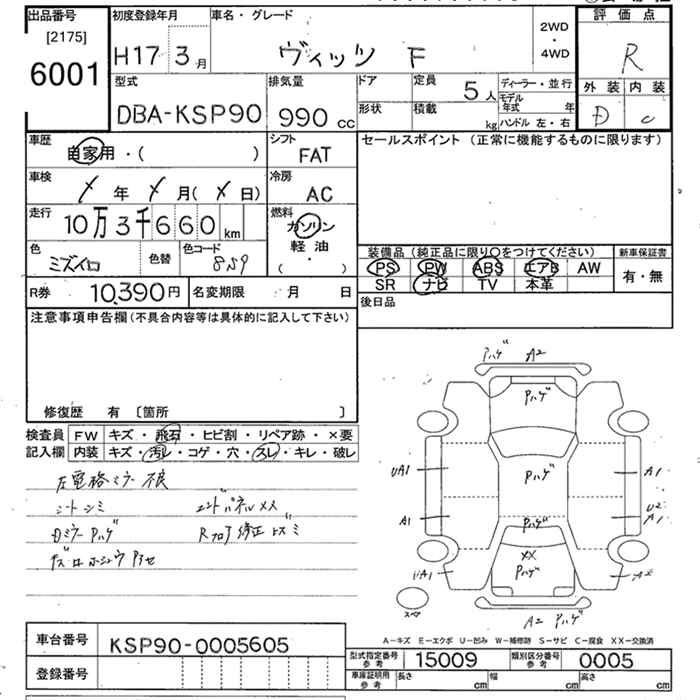 出品番号 [2175] 6001
初度登録年月 H17 3月
車名・グレード ヴィッツ F
2WD・4WD
評価点 R
外装 D 内装 C
型式 DBA-KSP90
排気量 990 cc
ドア 形状
定員 5人
積載 kg
ディーラー・並行
モデル年式 年
ハンドル 左・右
車歴 自家用・( )
シフト FAT
セールスポイント (正常に機能するものに限ります)
車検 年 月( 日)
冷房 AC
走行 10万3千660km
燃料 ガソリン 軽油 ・( )
色 ミズイロ 色替 色コード 8S9
装備品 (純正品に限り○をつけてください)
新車保証書 有・無
PS PW ABS エアB AW
SR ナビ TV 本革
R券 10,390円 名変期限 月 日
後日品
注意事項申告欄(不具合内容等は具体的に記入して下さい)
修復歴 有 〔箇所 〕
検査員記入欄
FW キズ・飛石・ヒビ割・リペア跡・×要
内装 キズ・汚レ・コゲ・穴・スレ・キレ・破レ
左電格ミラー不良
シートシミ エンドパネルXX
Dミラー Pハゲ Rフロア修正 ヒズミ
Pハゲ A2
Pハゲ
Pハゲ
UA1 A1
Pハゲ
A1 U2 A1
XX
Pハゲ
UA1 A2
スペア
A2 Pハゲ
A-キズ E-エクボ U-凹み W-補修跡 S-サビ C-腐食 XX-交換済
車台番号 KSP90-0005605
登録番号
型式指定番号 参考 15009 類別区分番号 参考 0005
車庫証明用 参考 長さ cm 幅 cm 高さ cm